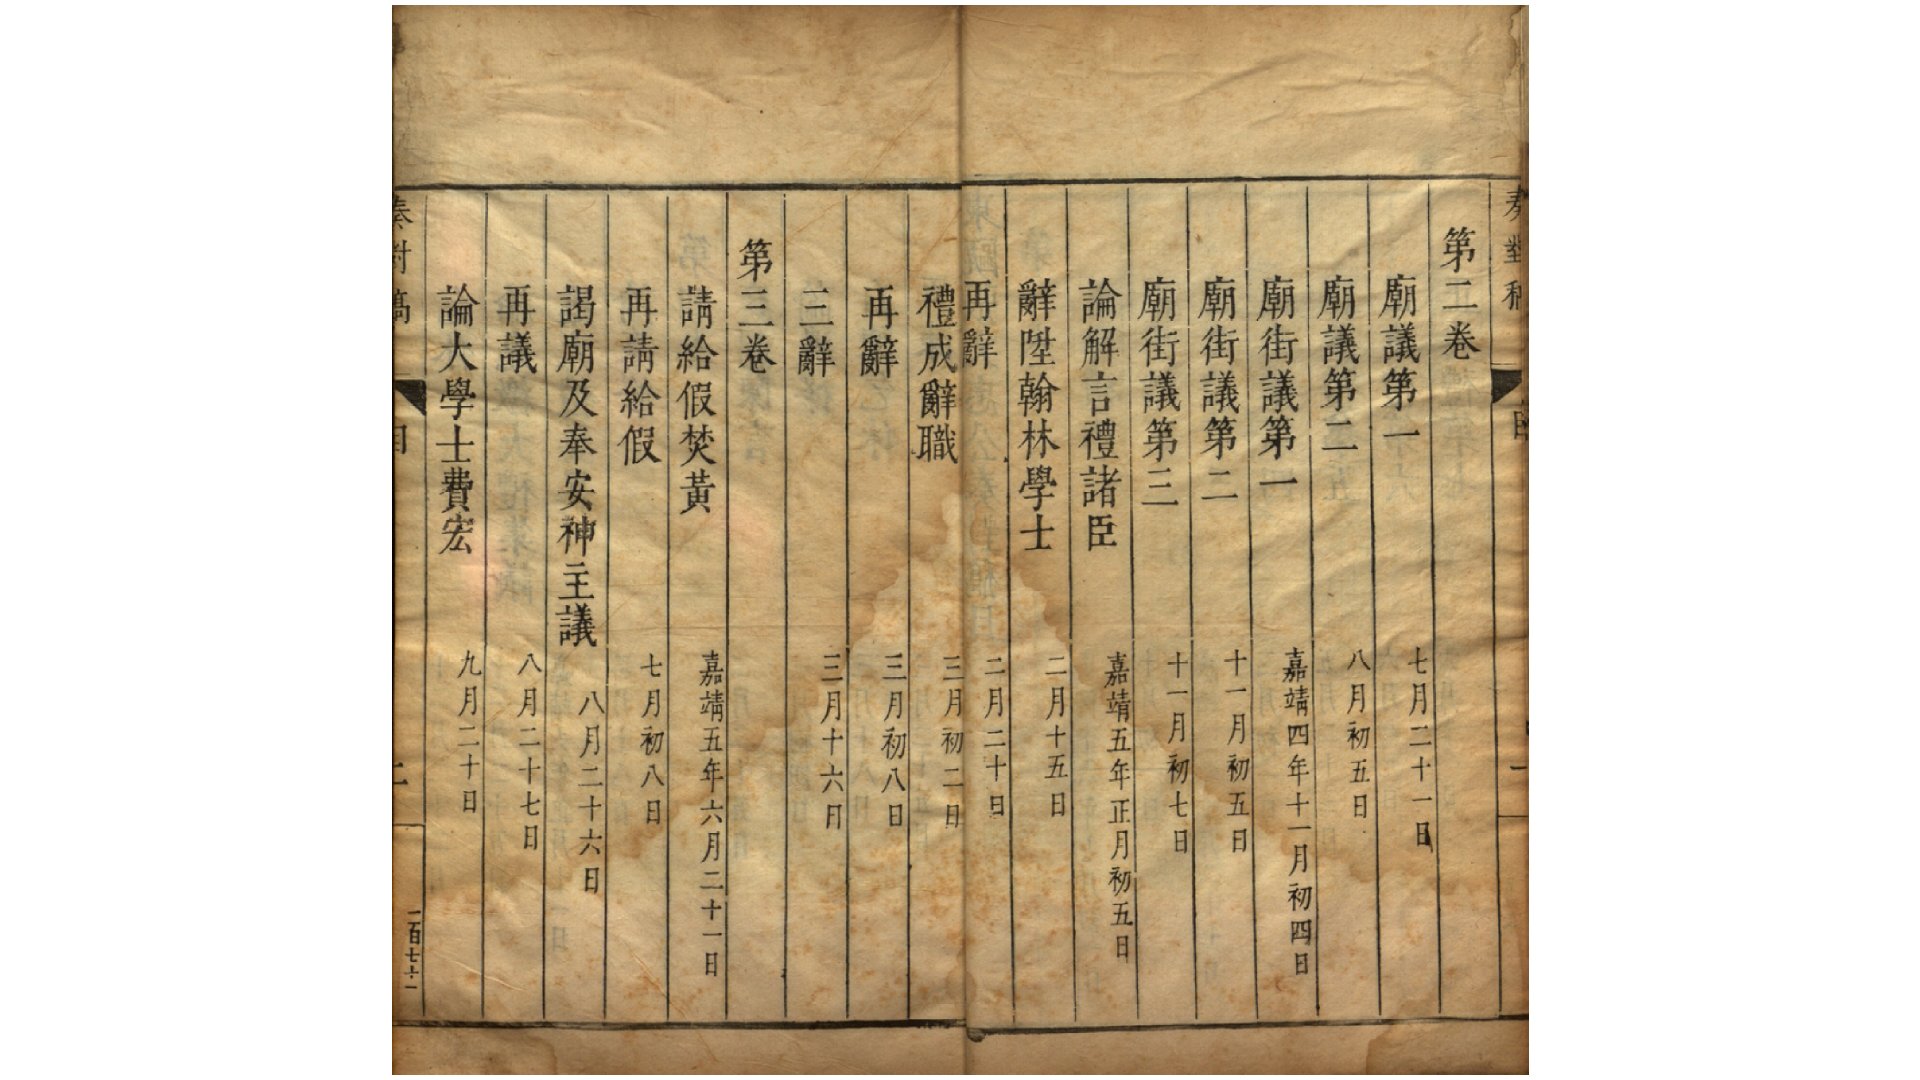 第二卷
廟議第一 七月二十一日
廟議第二 八月初五日
廟街議第一 嘉靖四年十一月初四日
廟街議第二 十一月初五日
廟街議第三 十一月初七日
論解言禮諸臣 嘉靖五年正月初五日
辭陞翰林學士 二月十五日
再辭 二月二十日
禮成辭職 三月初二日
再辭 三月初八日
三辭 三月十六日
第三卷
請給假焚黃 嘉靖五年六月二十一日
再請給假 七月初八日
謁廟及奉安神主議 八月二十六日
再議 八月二十七日
論大學士費宏 九月二十日
奏對稿